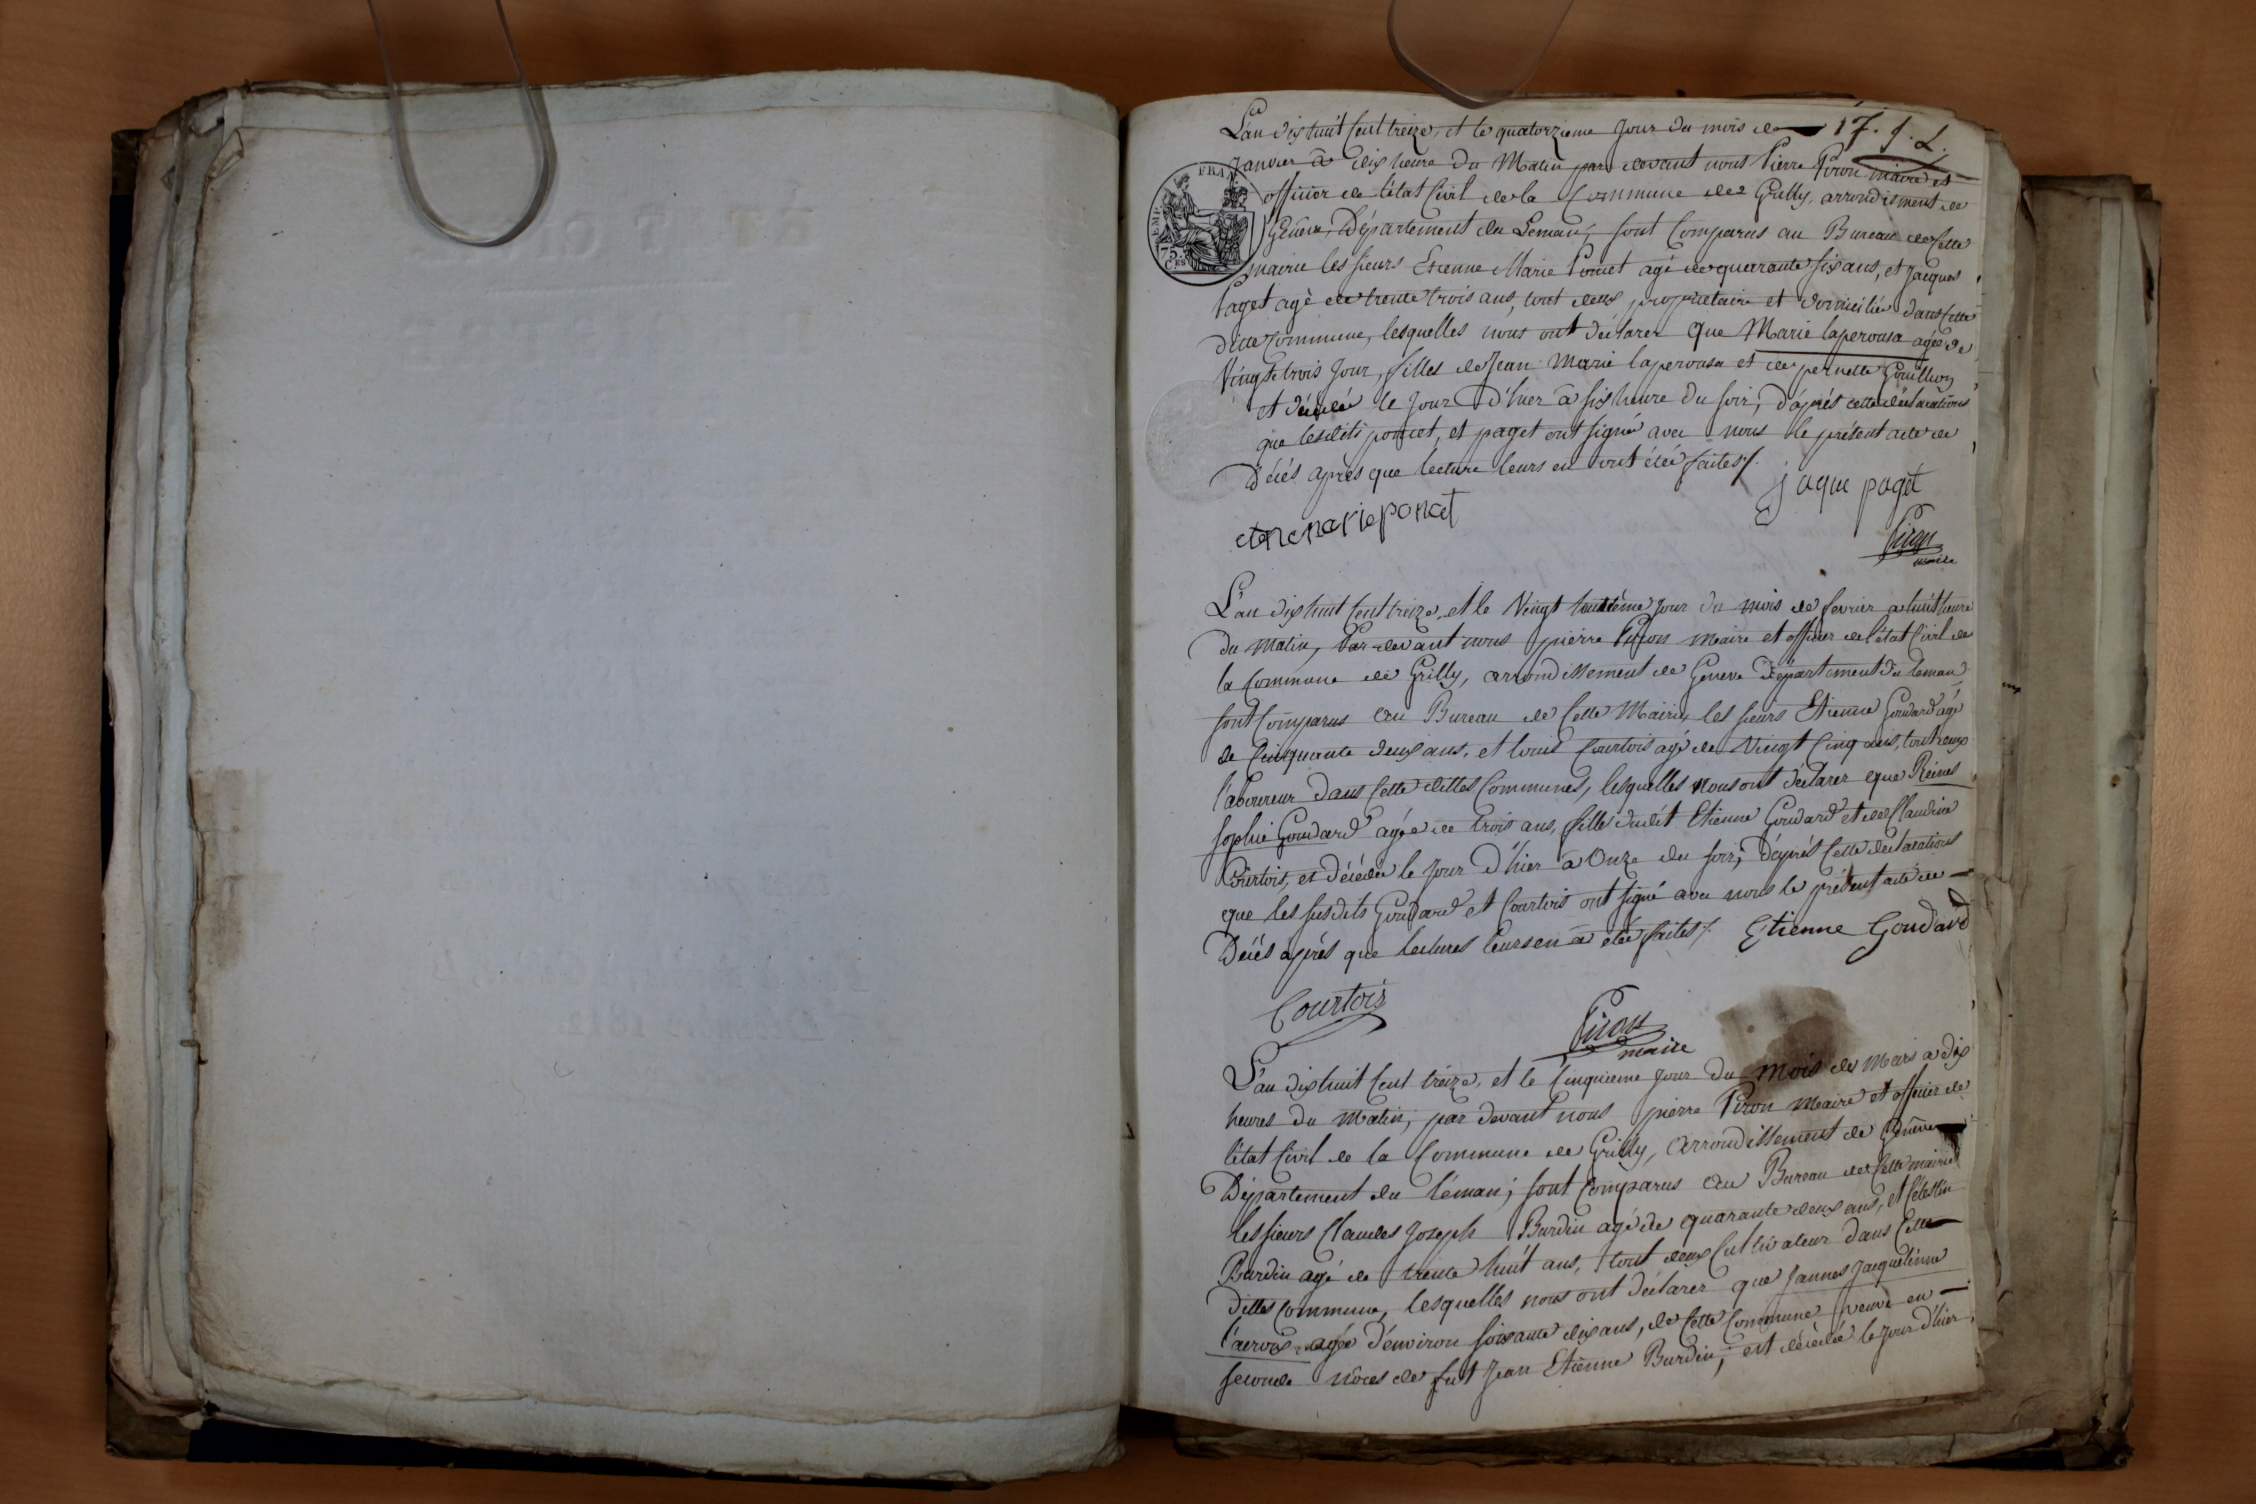 L'an dix huit cent treize, et le quatorzieme jour du mois de 17. f. L.
janvier à dix heure du Matin par devant nous Pierre Piron maire et
officier de l'état Civil de la Commune de Grilly, arrondisment de
Genève, Département du Leman, sont Comparus au Bureau de Cette
mairie les sieurs Etienne Marie Poncet agé de quarante six ans, et Jacques
Paget agé de trente trois ans, tout deux proprietaire et domicilié dans Cette
ditte Commune, lesquelles nous ont déclarer que Marie laperousa agée de
Vingt trois Jour, filles de Jean Marie laperousa et de pernette
et décédé le jour D'hier à six heure du soir, D'après cette déclarations
que lesdits poncet, et paget ont signé avec nous le présent acte de
Décés après que lecture leurs en ont étée faites /.
jaque paget
etienenarieponcet
Piron
maire
FRA
EMP
75
CES
L'an dix huit Cent treize, et le Vingt huitième jour du mois de fevrier a huit heure
du Matin, Par devant nous pierre Piron maire et officier de l'état Civil de
la Commune de Grilly, arrondissement de Geneve Département du leman
sont Comparus au Bureau de Cette Mairie, les sieurs Etienne Goudard agé
de Cinquante deux ans, et louis Courtois agé de Vingt Cinq ans, tout deux
laboureur dans Cette dittes Communes, lesquelles nous ont déclarer que Reines
sophie Goudard agée de trois ans, fille dudit Etienne Goudard et de Claudine
Courtois, et décédée le jour d'hier à Onze du soir, d'après Cette declarations
que les susdits Goudard et Courtois ont signé avec nous le présent acte de
Décés après que lectures leurs en a étée faites /. Etienne Goudard
Courtois
Piron
maire
L'an dix huit Cent treize, et le Cinquieme jour du mois de Mars a dix
heures du Matin, par devant nous pierre Piron maire et officier de
l'état Civil de la Commune de Grilly, arrondissement de Genève
Département du léman; sont Comparus au Bureau de Cette mairie
les sieurs Claudes Joseph Burdin agé de quarante deux ans, et Célestin
Burdin agé de trente huit ans, tout deux Cultivateur dans Cette
dittes Commune, lesquelles nous ont déclarer que Jannes Jacquelinne
agée d'environ soixante dix ans, de Cette Commune veuve en
seconde nôces de fut Jean Etienne Burdin, est décédée le jour d'hier